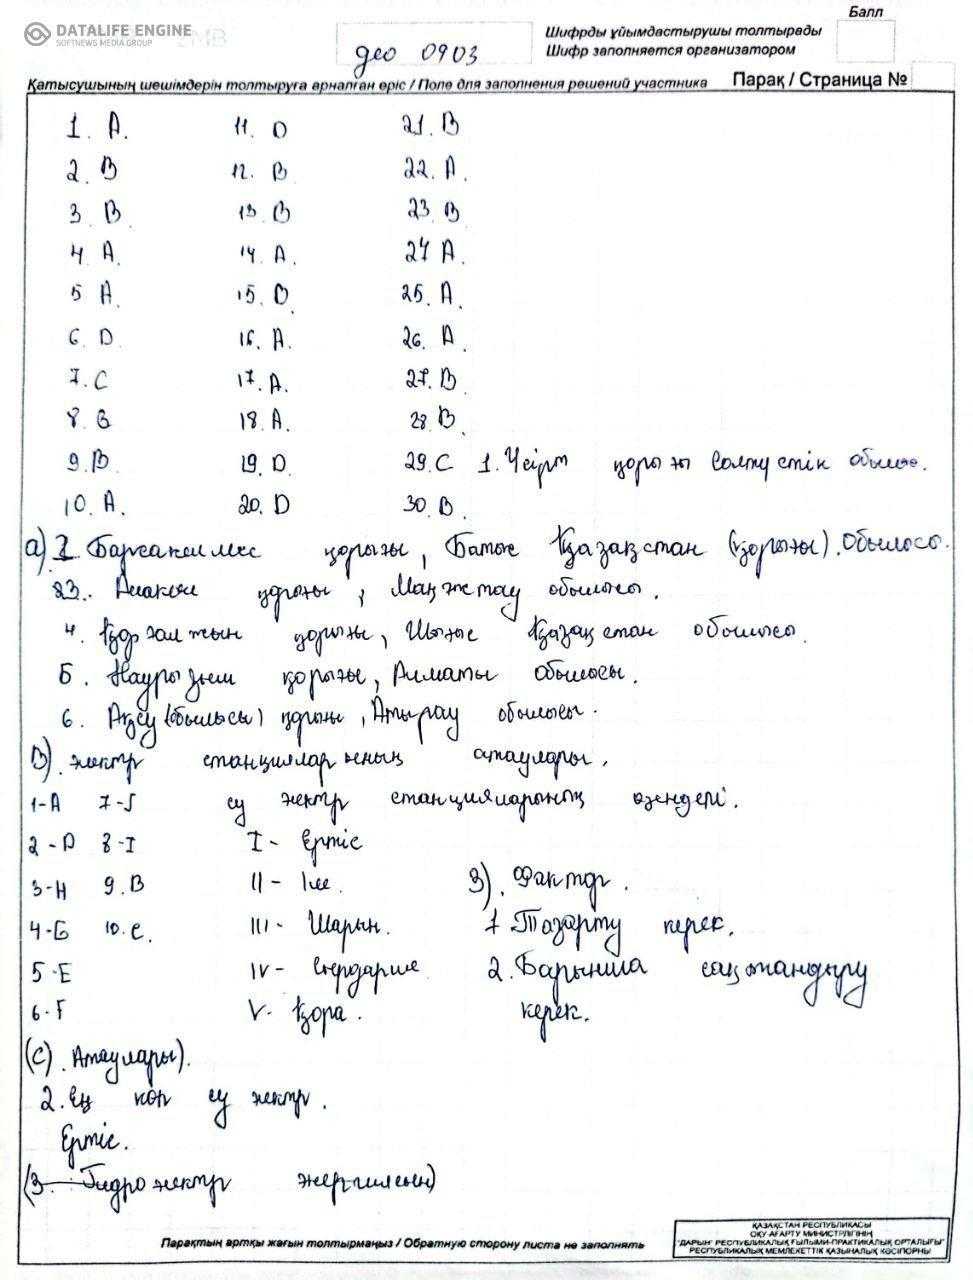 DATALIFE ENGINE
SOFTNEWS MEDIA GROUP
Балл
Шифрды ұйымдастырушы толтырады
Шифр заполняется организатором
geo 0903
Қатысушының шешімдерін толтыруға арналған өріс / Поле для заполнения решений участника
Парақ / Страница №
1. A. 11. D 21. B
2. B 12. B 22. A.
3. B. 13 B 23. B
4 A. 14. A. 24 A.
5 A. 15. D. 25. A.
6. D. 16. A. 26. A.
7. C 17. A. 27. B.
8. B 18. A. 28. B.
9. B 19. D. 29. C 1. қорығы Солтүстік облысы.
10. A. 20. D 30. B.
a). 2. Барсакелмес қорығы, Батыс Қазақстан (қорығы). облысы.
3. Алакөл қорығы, Маңғстау облысы.
4. Қорғалжын қорығы, Шығыс Қазақстан облысы.
5. Наурызым қорығы, Алматы облысы.
6. Ақсу (облысы) қорығы, Атырау облысы.
B). электр станцияларының атаулары.
1-A 7-J су электр станцияларының өзендері.
2-D 8-I I- Ертіс
3-H 9. B II- Іле. 3). Фактор.
4-G 10. C. III- Шарын. 1 Тазарту керек.
5-E IV- Сырдария 2. Барынша сақтандыру
6-F V- Қора. керек.
(C). Атаулары).
2. Ең көп су электр.
Ертіс.
(3. Гидроэлектр
Парақтың артқы жағын толтырмаңыз / Обратную сторону листа не заполнять
ҚАЗАҚСТАН РЕСПУБЛИКАСЫ
ОҚУ-АҒАРТУ МИНИСТРЛІГІНІҢ
"ДАРЫН" РЕСПУБЛИКАЛЫҚ ҒЫЛЫМИ-ПРАКТИКАЛЫҚ ОРТАЛЫҒЫ"
РЕСПУБЛИКАЛЫҚ МЕМЛЕКЕТТІК ҚАЗЫНАЛЫҚ КӘСІПОРНЫ